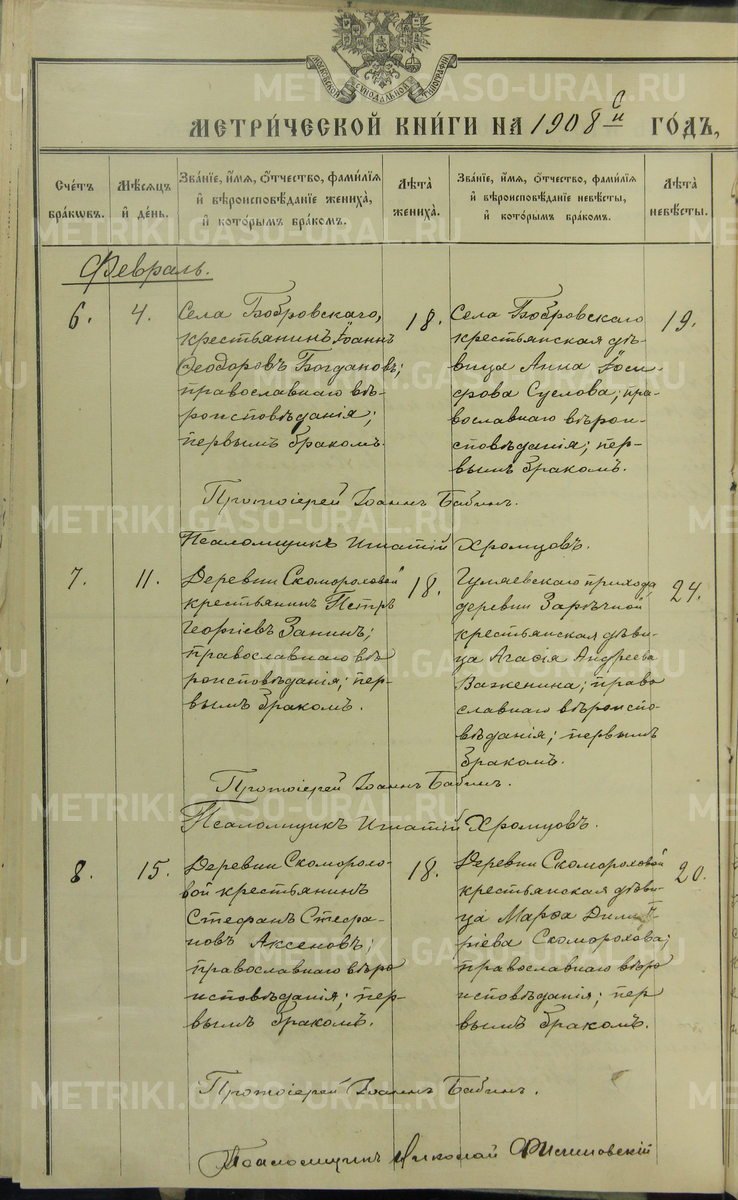 МОСКОВСКОЙ СѴНОДАЛЬНОЙ ТИПОГРАФІИ
МЕТРИ́ЧЕСКОЙ КНИ́ГИ НА 1908 й ГО́ДЪ,
Сче́тъ бра́кѡвъ.
Мѣ́сяцъ и҆ де́нь.
Зва́нїе, и҆́мѧ, ѻ҆́тчество, фами́лїѧ и҆ вѣроисповѣ́данїе жениха̀, и҆ кото́рымъ бра́комъ.
Лѣ́та̀ жениха̀.
Зва́нїе, и҆́мѧ, ѻ҆́тчество, фами́лїѧ и҆ вѣроисповѣ́данїе невѣ́сты, и҆ кото́рымъ бра́комъ.
Лѣ́та̀ невѣ́сты.
Февраль.
6.
4.
Села Бобровскаго,
крестьянинъ Іоаннъ
Ѳеодоровъ Богдановъ;
православнаго вѣ-
роисповѣданія;
первымъ бракомъ.
18.
Села Бобровскаго
крестьянская дѣ-
вица Анна Іоси-
фова Суслова; пра-
вославнаго вѣрои-
сповѣданія; пер-
вымъ бракомъ.
19.
Протоіерей Іоаннъ Бабинъ.
Псаломщикъ Игнатій Хромцовъ.
7.
11.
Деревни Скомороховой
крестьянинъ Петръ
Георгіевъ Занинъ;
православнаго вѣ
роисповѣданія; пер-
вымъ бракомъ.
18.
Гуляевскаго прихода,
деревни Зарѣчной
крестьянская дѣви-
ца Агафія Андреева
Важенина; право
славнаго вѣроиспо-
вѣданія; первымъ
бракомъ.
24.
Протоіерей Іоаннъ Бабинъ.
Псаломщикъ Игнатій Хромцовъ.
8.
15.
Деревни Скоморохо-
вой крестьянинъ
Стефанъ Стефа-
новъ Аксеновъ;
православнаго вѣро
исповѣданія; пер-
вымъ бракомъ.
18.
Деревни Скомороховой
крестьянская дѣви-
ца Марѳа Димит-
ріева Скоморохова;
православнаго вѣро
исповѣданія; пер
вымъ бракомъ.
20.
Протоіерей Іоаннъ Бабинъ.
Псаломщикъ Николай
METRIKI.GASO-URAL.RU